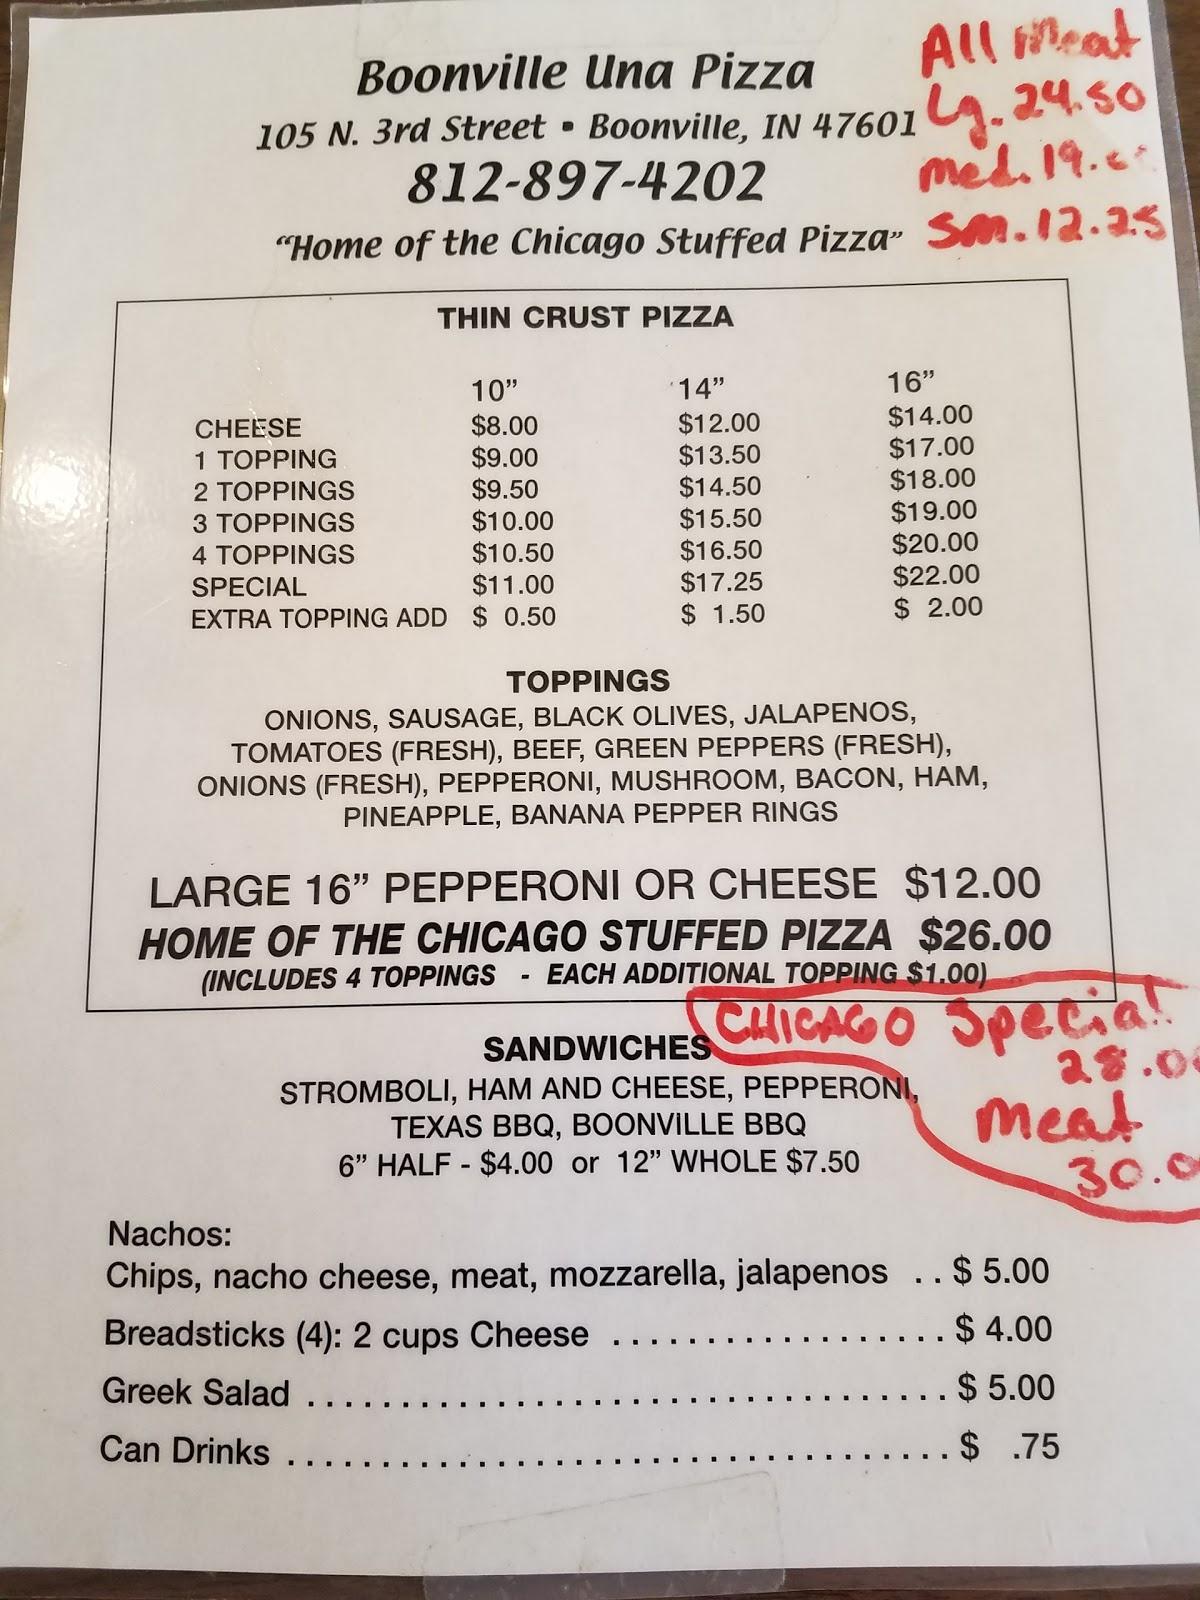 Boonville Una Pizza
105 N. 3rd Street • Boonville, IN 47601
812-897-4202
"Home of the Chicago Stuffed Pizza"
All Meat
Lg. 24.50
med. 19.
Sm. 12.25
THIN CRUST PIZZA
10" 14" 16"
CHEESE $8.00 $12.00 $14.00
1 TOPPING $9.00 $13.50 $17.00
2 TOPPINGS $9.50 $14.50 $18.00
3 TOPPINGS $10.00 $15.50 $19.00
4 TOPPINGS $10.50 $16.50 $20.00
SPECIAL $11.00 $17.25 $22.00
EXTRA TOPPING ADD $ 0.50 $ 1.50 $ 2.00
TOPPINGS
ONIONS, SAUSAGE, BLACK OLIVES, JALAPENOS,
TOMATOES (FRESH), BEEF, GREEN PEPPERS (FRESH),
ONIONS (FRESH), PEPPERONI, MUSHROOM, BACON, HAM,
PINEAPPLE, BANANA PEPPER RINGS
LARGE 16" PEPPERONI OR CHEESE $12.00
HOME OF THE CHICAGO STUFFED PIZZA $26.00
(INCLUDES 4 TOPPINGS - EACH ADDITIONAL TOPPING $1.00)
CHICAGO Special
28.0
Meat
30.0
SANDWICHES
STROMBOLI, HAM AND CHEESE, PEPPERONI,
TEXAS BBQ, BOONVILLE BBQ
6" HALF - $4.00 or 12" WHOLE $7.50
Nachos:
Chips, nacho cheese, meat, mozzarella, jalapenos . . $ 5.00
Breadsticks (4): 2 cups Cheese . . . . . . . . . . . . . . . . . . $ 4.00
Greek Salad . . . . . . . . . . . . . . . . . . . . . . . . . . . . . . . . . . $ 5.00
Can Drinks . . . . . . . . . . . . . . . . . . . . . . . . . . . . . . . . . . . $ .75